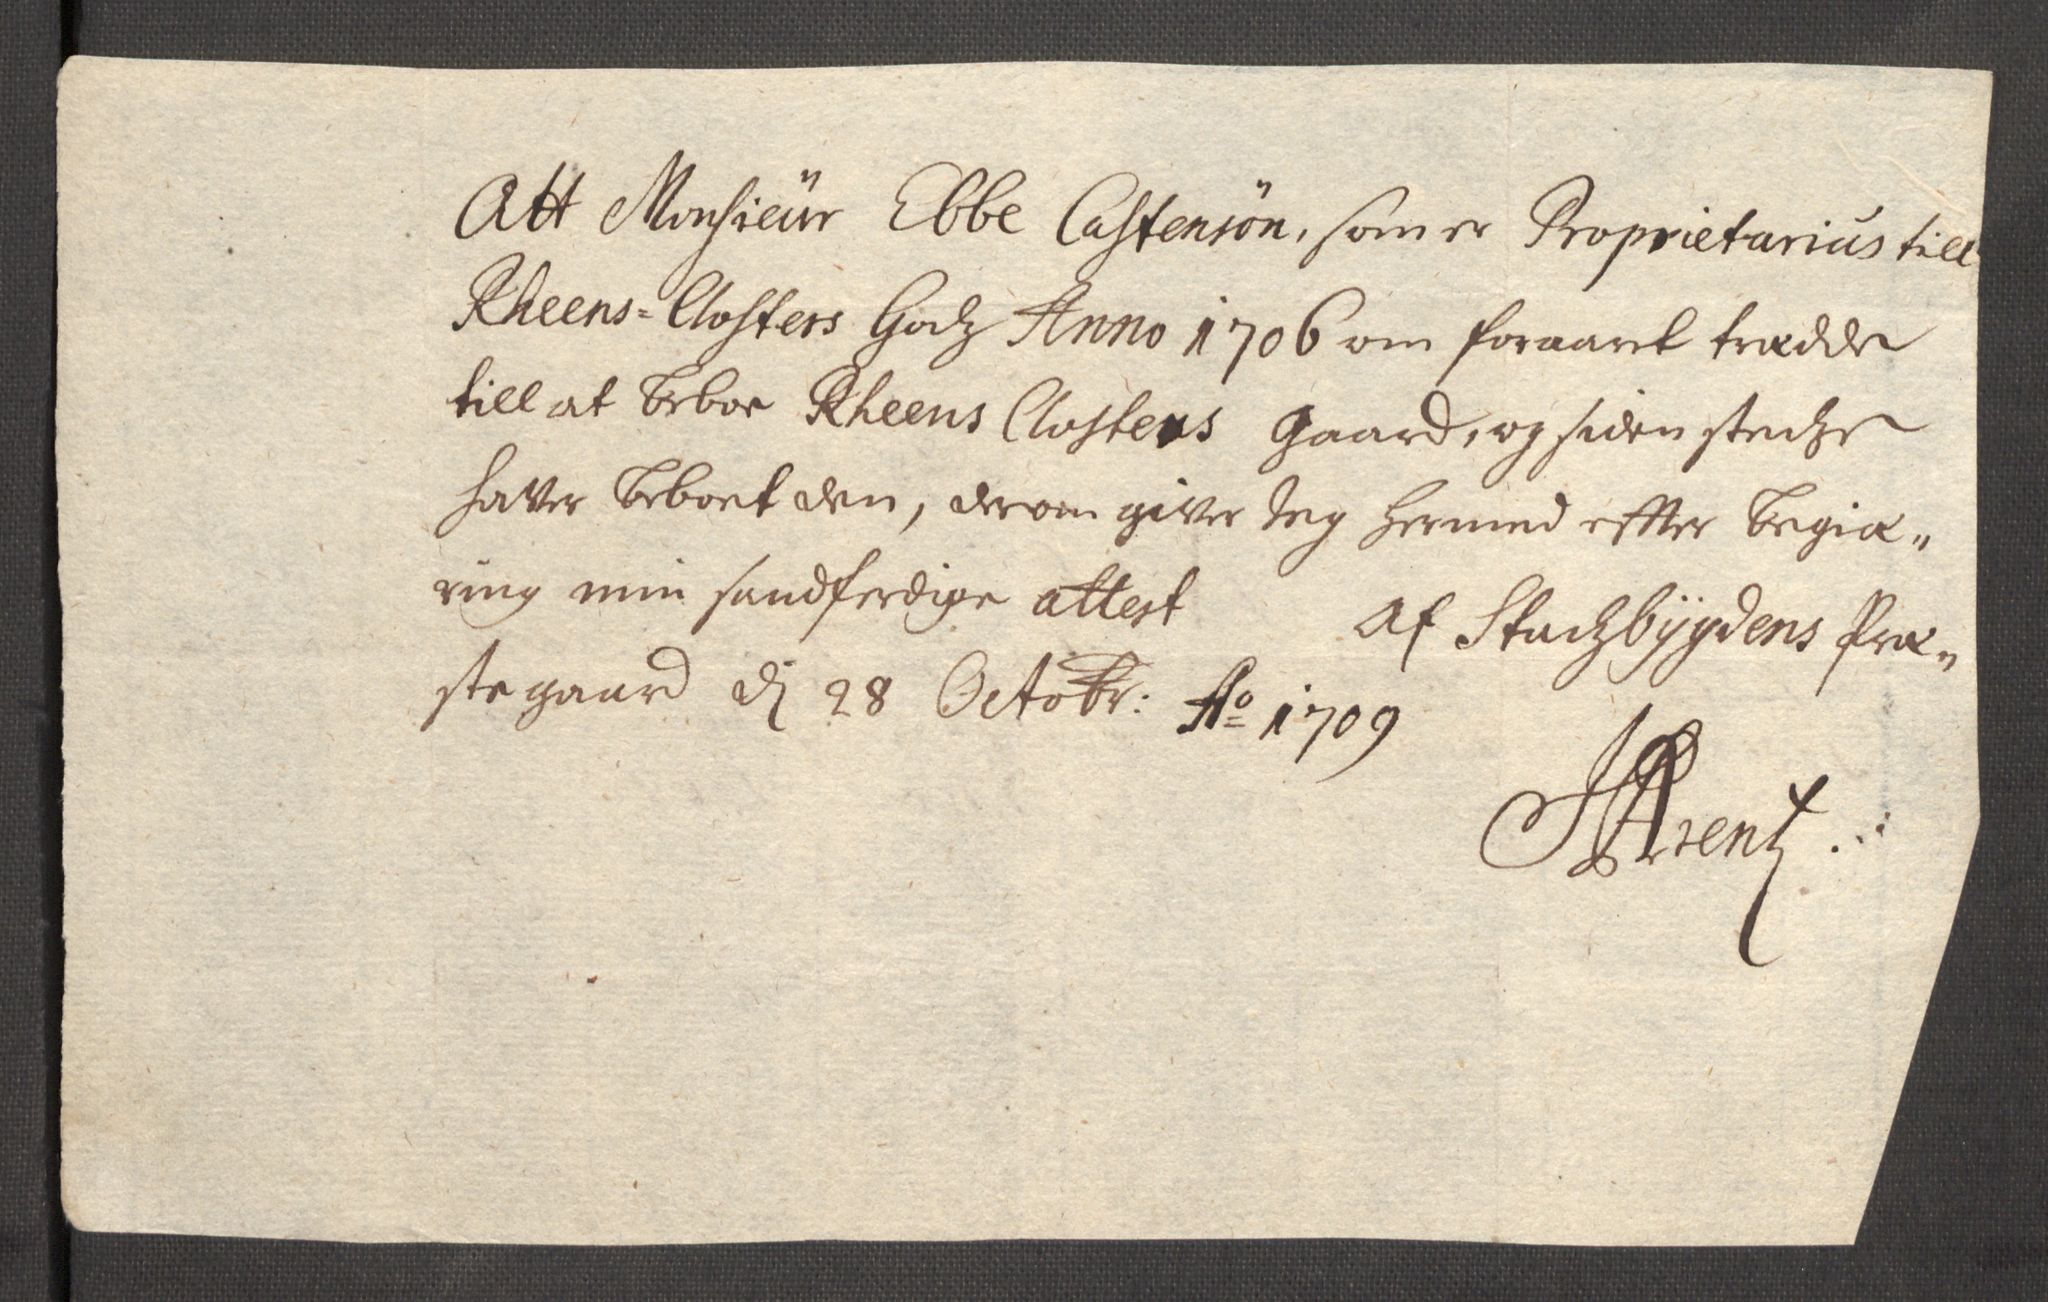 Att Monsieur Ebbe Castensön, som er Proprietarius till
Rheens-Closters Godz Anno 1706 om foraaret trædde
till at beboe Rheens Closters Gaard, og siden stedze
hafver beboet den, derom giver Jeg hermed effter begiæ„
ring min sandferdige attest af Stadzbÿgdens Præ„
stegaard dj 28 Octobr: Ao 1709
Arentz